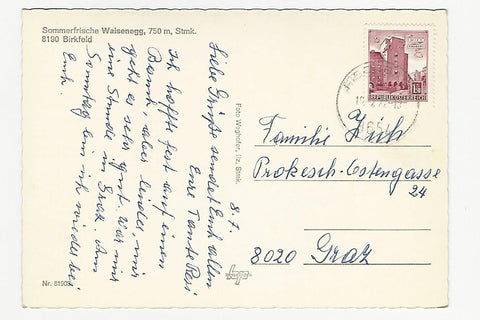 Sommerfrische Waisenegg, 750 m, Stmk.
8190 Birkfeld
8. 7.
Liebe Grüße sendet Euch allen
Eure Tante Resi
Ich hoffte fest auf einen
Besuch, aber leider, mir
geht es sehr gut. War nur
eine Stunde in Graz. Am
Sonntag bin ich wieder bei
Euch.
Foto Waghofer, Ilz, Stmk.
Nr. 81903
REPUBLIK ÖSTERREICH
Familie
Prokesch-Ostengasse
24
8020 Graz